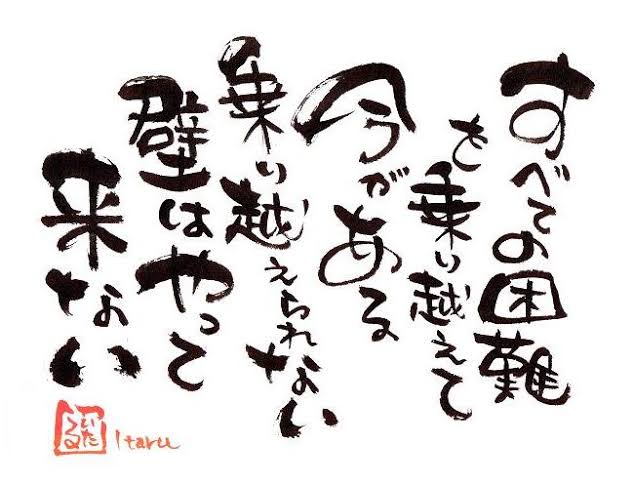 すべての困難
を乗り越えて
今がある
乗り越えられない
壁はやって
来ない
いたる
Itaru